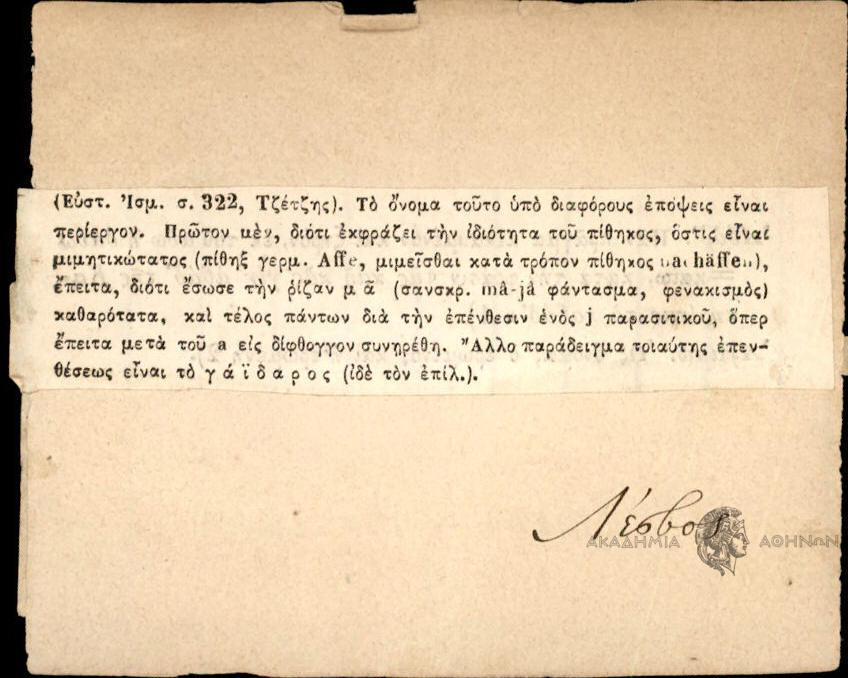 (Εὐστ. Ἰσμ. σ. 322, Τζέτζης). Τὸ ὄνομα τοῦτο ὑπὸ διαφόρους ἐπόψεις εἶναι
περίεργον. Πρῶτον μὲν, διότι ἐκφράζει τὴν ἰδιότητα τοῦ πίθηκος, ὅστις εἶναι
μιμητικώτατος (πίθηξ γερμ. Affe, μιμεῖσθαι κατὰ τρόπον πίθηκος nachäffen),
ἔπειτα, διότι ἔσωσε τὴν ῥίζαν μᾶ (σανσκρ. mâ-jâ φάντασμα, φενακισμὸς)
καθαρότατα, καὶ τέλος πάντων διὰ τὴν ἐπένθεσιν ἑνὸς j παρασιτικοῦ, ὅπερ
ἔπειτα μετὰ τοῦ a εἰς δίφθογγον συνῃρέθη. Ἄλλο παράδειγμα τοιαύτης ἐπεν-
θέσεως εἶναι τὸ γάϊδαρος (ἰδὲ τὸν ἐπίλ.).
Λέσβος
ΑΚΑΔΗΜΙΑ ΑΘΗΝΩΝ